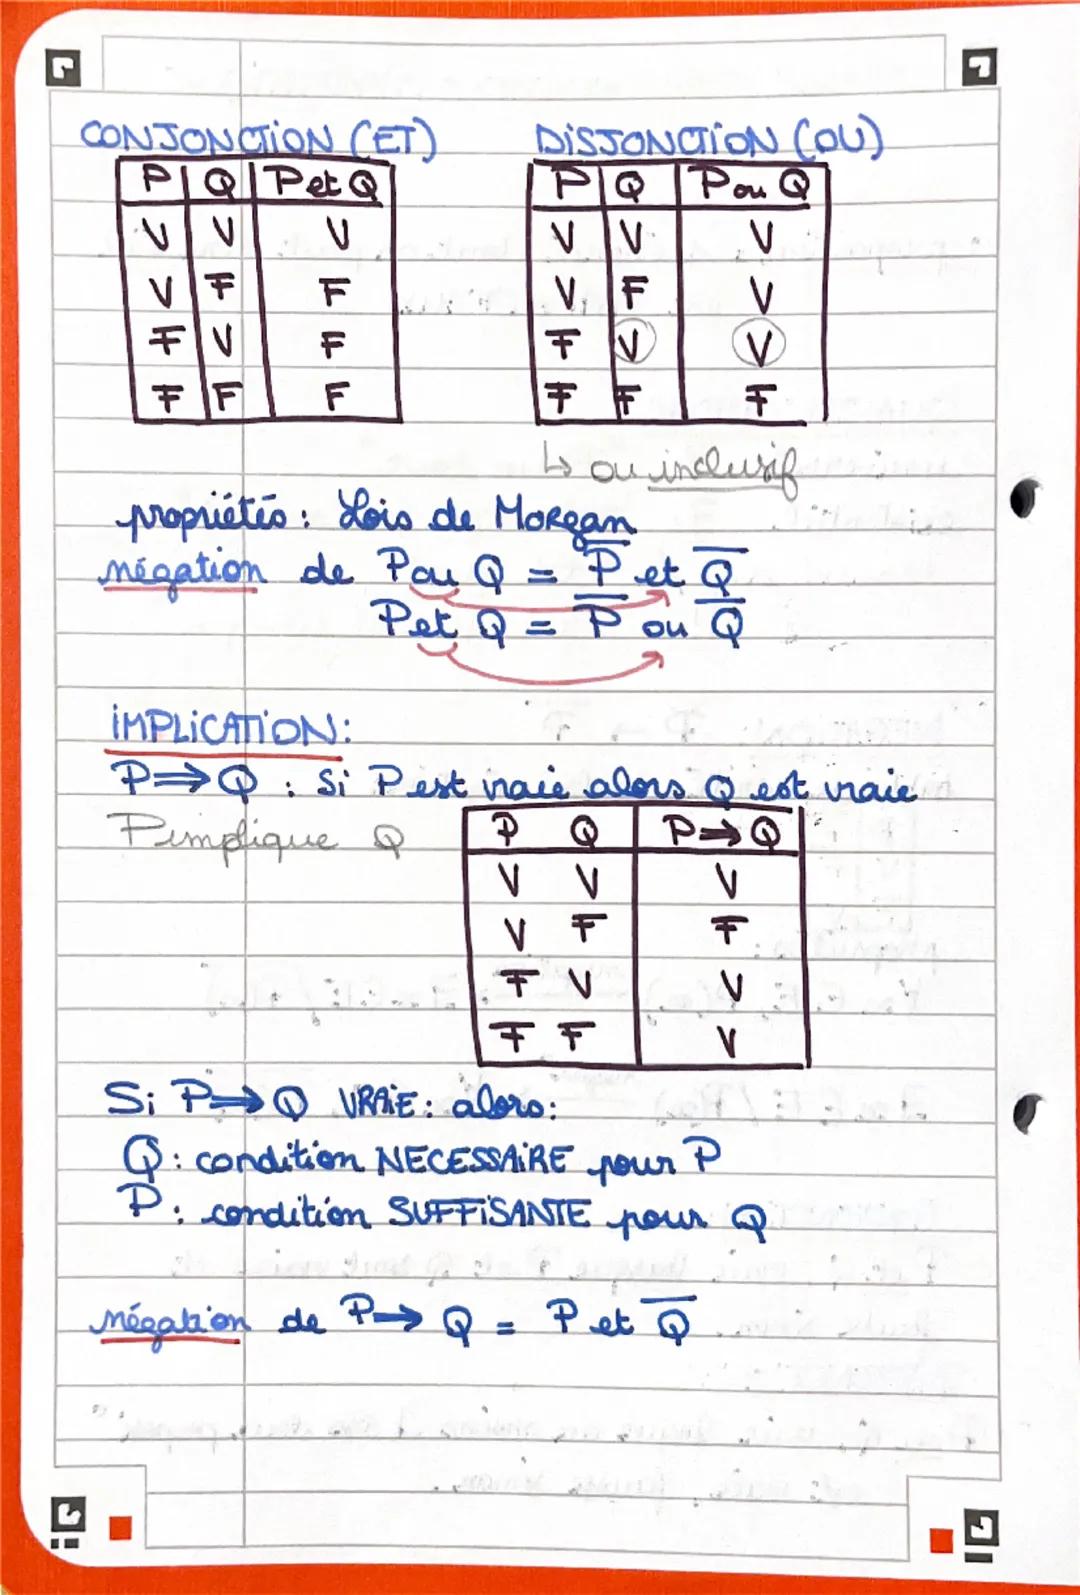 CONJONCTION (ET)
P Q P et Q
V V V
V F F
F V F
F F F
DISJONCTION (OU)
P Q P ou Q
V V V
V F V
F V V
F F F
↳ ou inclusif
propriétés : Lois de Morgan
négation de P ou Q = P̅ et Q̅
P et Q = P̅ ou Q̅
IMPLICATION:
P⇒Q : Si P est vraie alors Q est vraie
P implique Q
P Q P⇒Q
V V V
V F F
F V V
F F V
Si P⇒Q VRAIE : alors :
Q : condition NECESSAIRE pour P
P : condition SUFFISANTE pour Q
négation de P→ Q = P et Q̅